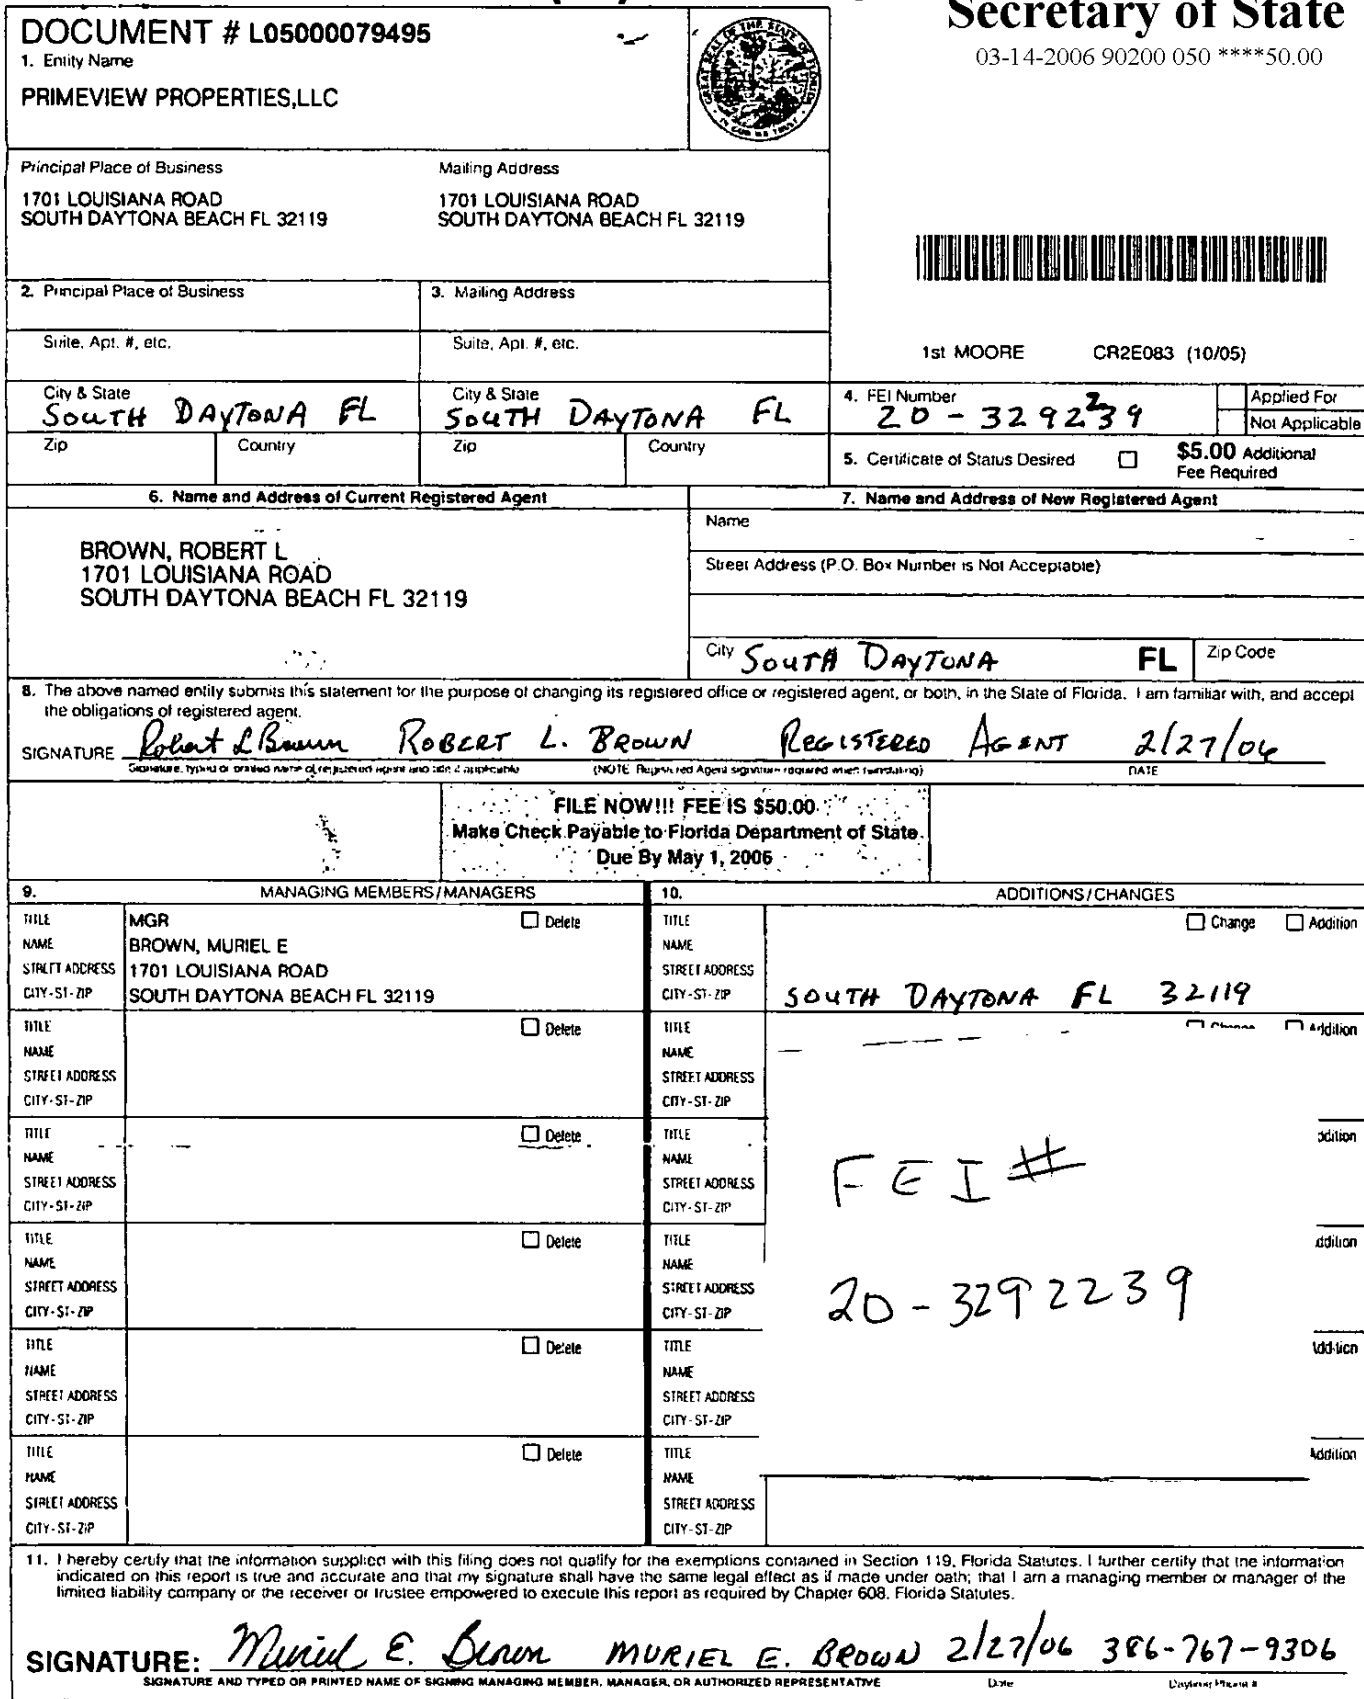 Secretary of State
03-14-2006 90200 050 ****50.00
DOCUMENT # L05000079495
1. Entity Name
PRIMEVIEW PROPERTIES,LLC
Principal Place of Business
Mailing Address
1701 LOUISIANA ROAD
SOUTH DAYTONA BEACH FL 32119
1701 LOUISIANA ROAD
SOUTH DAYTONA BEACH FL 32119
2. Principal Place of Business
3. Mailing Address
Suite, Apt. #, etc.
Suite, Apt. #, etc.
1st MOORE CR2E083 (10/05)
City & State
SOUTH DAYTONA FL
City & State
SOUTH DAYTONA FL
4. FEI Number
20-3292239
2
Applied For
Not Applicable
Zip
Country
Zip
Country
5. Certificate of Status Desired
$5.00 Additional
Fee Required
6. Name and Address of Current Registered Agent
7. Name and Address of New Registered Agent
BROWN, ROBERT L
1701 LOUISIANA ROAD
SOUTH DAYTONA BEACH FL 32119
Name
Street Address (P.O. Box Number is Not Acceptable)
City SOUTH DAYTONA FL
Zip Code
8. The above named entity submits this statement for the purpose of changing its registered office or registered agent, or both, in the State of Florida. I am familiar with, and accept
the obligations of registered agent.
SIGNATURE Robert L Brown ROBERT L. BROWN REGISTERED AGENT 2/27/06
Signature, typed or printed name of registered agent and title if applicable
(NOTE Registered Agent signature required when reinstating)
DATE
FILE NOW!!! FEE IS $50.00
Make Check Payable to Florida Department of State
Due By May 1, 2006
9. MANAGING MEMBERS/MANAGERS
10. ADDITIONS/CHANGES
TITLE MGR Delete
NAME BROWN, MURIEL E
STREET ADDRESS 1701 LOUISIANA ROAD
CITY-ST-ZIP SOUTH DAYTONA BEACH FL 32119
TITLE Change Addition
NAME
STREET ADDRESS
CITY-ST-ZIP SOUTH DAYTONA FL 32119
TITLE Delete
NAME
STREET ADDRESS
CITY-ST-ZIP
TITLE Change Addition
NAME
STREET ADDRESS
CITY-ST-ZIP
TITLE Delete
NAME
STREET ADDRESS
CITY-ST-ZIP
TITLE ddition
NAME
STREET ADDRESS
CITY-ST-ZIP
FEI #
TITLE Delete
NAME
STREET ADDRESS
CITY-ST-ZIP
TITLE ddition
NAME
STREET ADDRESS
CITY-ST-ZIP
20-3292239
TITLE Delete
NAME
STREET ADDRESS
CITY-ST-ZIP
TITLE Addition
NAME
STREET ADDRESS
CITY-ST-ZIP
TITLE Delete
NAME
STREET ADDRESS
CITY-ST-ZIP
TITLE Addition
NAME
STREET ADDRESS
CITY-ST-ZIP
11. I hereby certify that the information supplied with this filing does not qualify for the exemptions contained in Section 119, Florida Statutes. I further certify that the information
indicated on this report is true and accurate and that my signature shall have the same legal effect as if made under oath; that I am a managing member or manager of the
limited liability company or the receiver or trustee empowered to execute this report as required by Chapter 608, Florida Statutes.
SIGNATURE: Muriel E. Brown MURIEL E. BROWN 2/27/06 386-767-9306
SIGNATURE AND TYPED OR PRINTED NAME OF SIGNING MANAGING MEMBER, MANAGER, OR AUTHORIZED REPRESENTATIVE
Date
Daytime Phone #